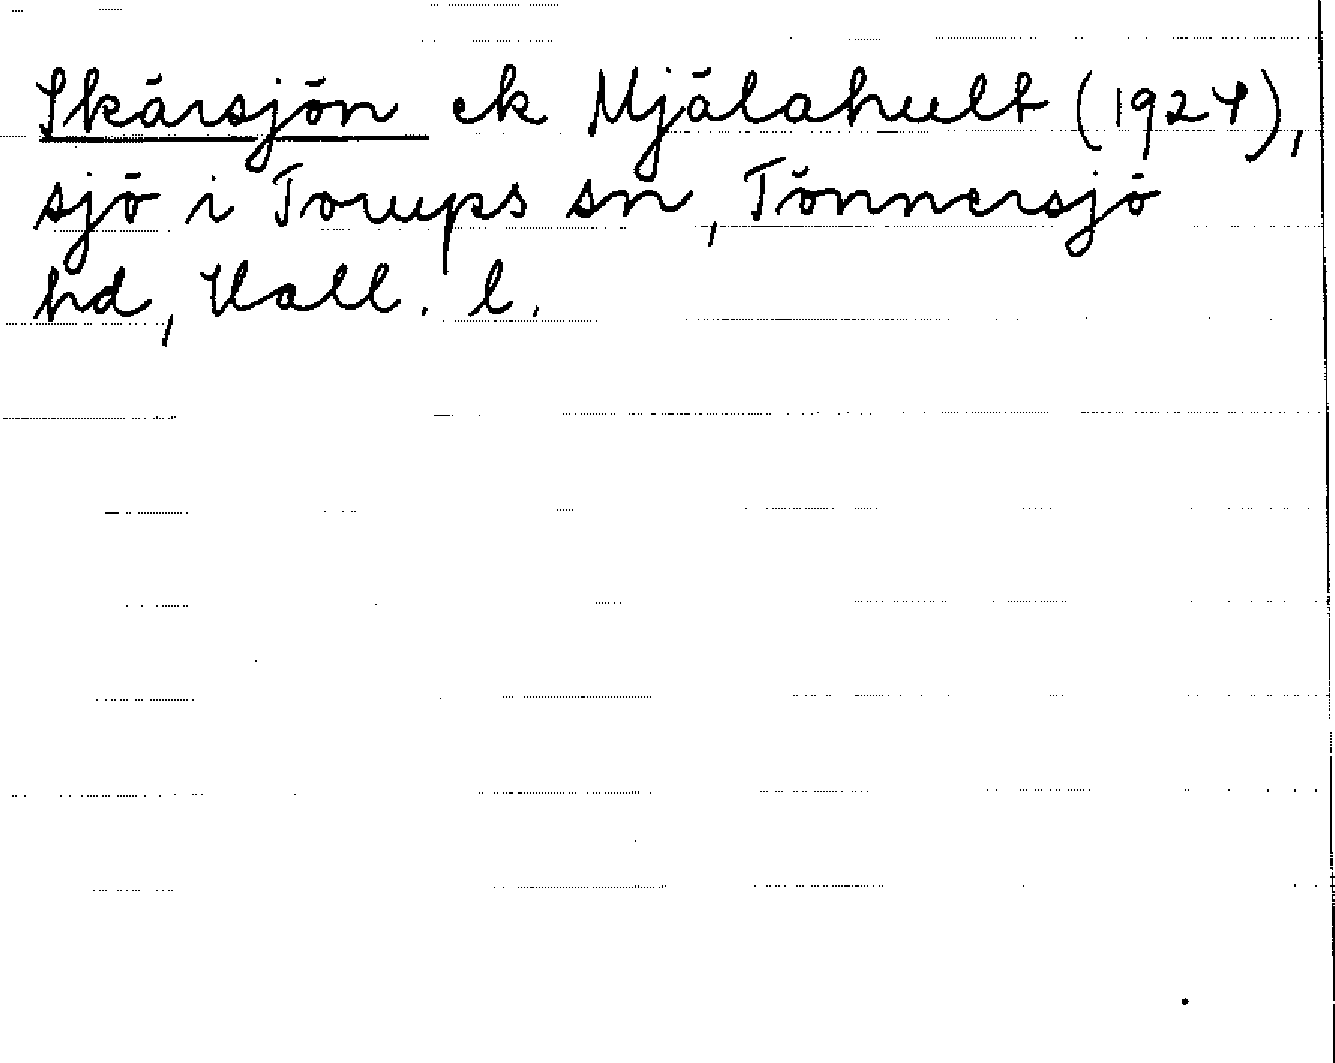 Skärsjön ek Mjälahult (1924),
sjö i Torups sn, Tönnersjö
hd, Hall. l.